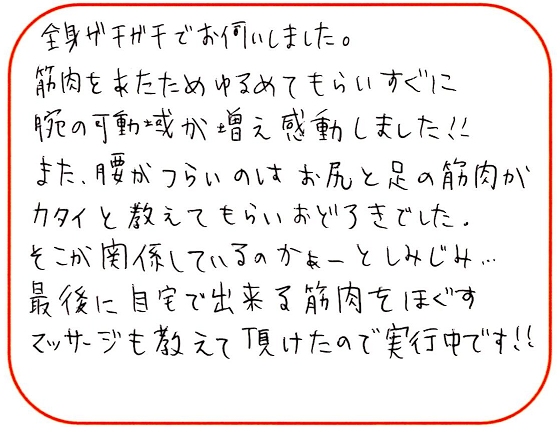 全身ガチガチでお伺いしました。
筋肉をあたためゆるめてもらいすぐに
腕の可動域が増え感動しました!!
また、腰がつらいのはお尻と足の筋肉が
カタイと教えてもらいおどろきでした。
そこが関係しているのかぁーとしみじみ…
最後に自宅で出来る筋肉をほぐす
マッサージも教えて頂けたので実行中です!!